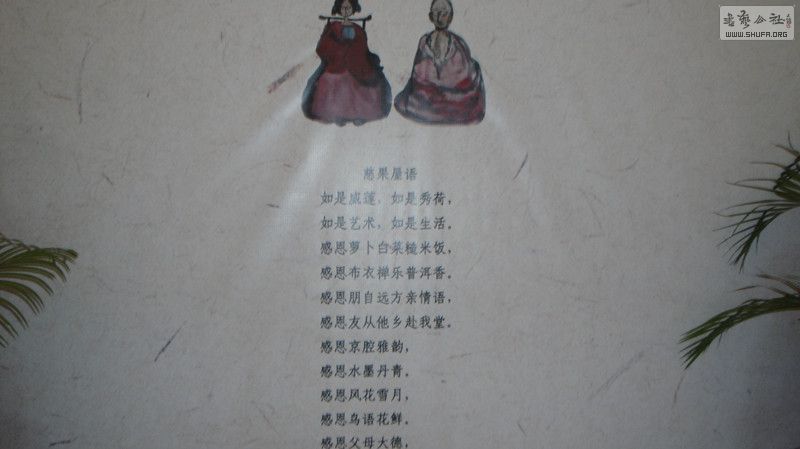 书艺公社
WWW.SHUFA.ORG
慈果屋语
如是威莲,如是秀荷,
如是艺术,如是生活。
感恩萝卜白菜糙米饭,
感恩布衣禅乐普洱香。
感恩朋自远方亲情语,
感恩友从他乡赴我堂。
感恩京腔雅韵,
感恩水墨丹青。
感恩风花雪月,
感恩鸟语花鲜。
感恩父母大德,